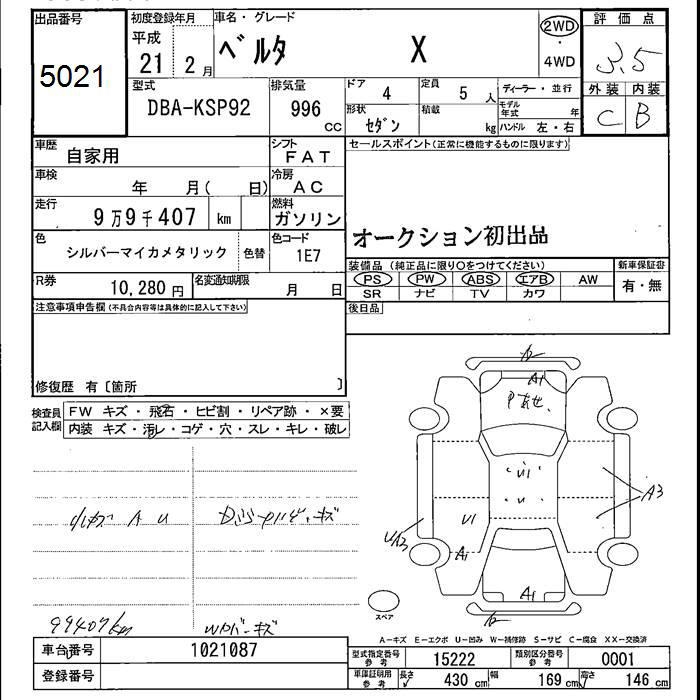 出品番号 初度登録年月 車名・グレード 評価点
5021 平成 21 2月 ベルタ X 2WD・4WD 3.5
型式 排気量 ドア 定員 ディーラー・並行 外装 内装
DBA-KSP92 996 cc 4 5人 モデル年式 年 C B
形状 積載
セダン kg ハンドル 左・右
車歴 自家用 シフト FAT セールスポイント(正常に機能するものに限ります)
車検 年 月( 日) 冷房 AC
走行 9万9千407 km 燃料 ガソリン
オークション初出品
色 シルバーマイカメタリック 色替 色コード 1E7
装備品(純正品に限り○をつけてください) 新車保証書
R券 10,280円 名変通知期限 月 日 PS PW ABS エアB AW 有・無
SR ナビ TV カワ
注意事項申告欄(不具合内容等は具体的に記入して下さい) 後日品
修復歴 有〔箇所 〕
検査員記入欄 FW キズ・飛石・ヒビ割・リペア跡・×要
内装 キズ・汚レ・コゲ・穴・スレ・キレ・破レ
A1
U1
U
A3
U1
A1
A1
A U
キズ
99407km
キズ
スペア
A-キズ E-エクボ U-凹み W-補修跡 S-サビ C-腐食 XX-交換済
車台番号 1021087 型式指定番号 参考 15222 類別区分番号 参考 0001
登録番号 車庫証明用 参考 長さ 430 cm 幅 169 cm 高さ 146 cm